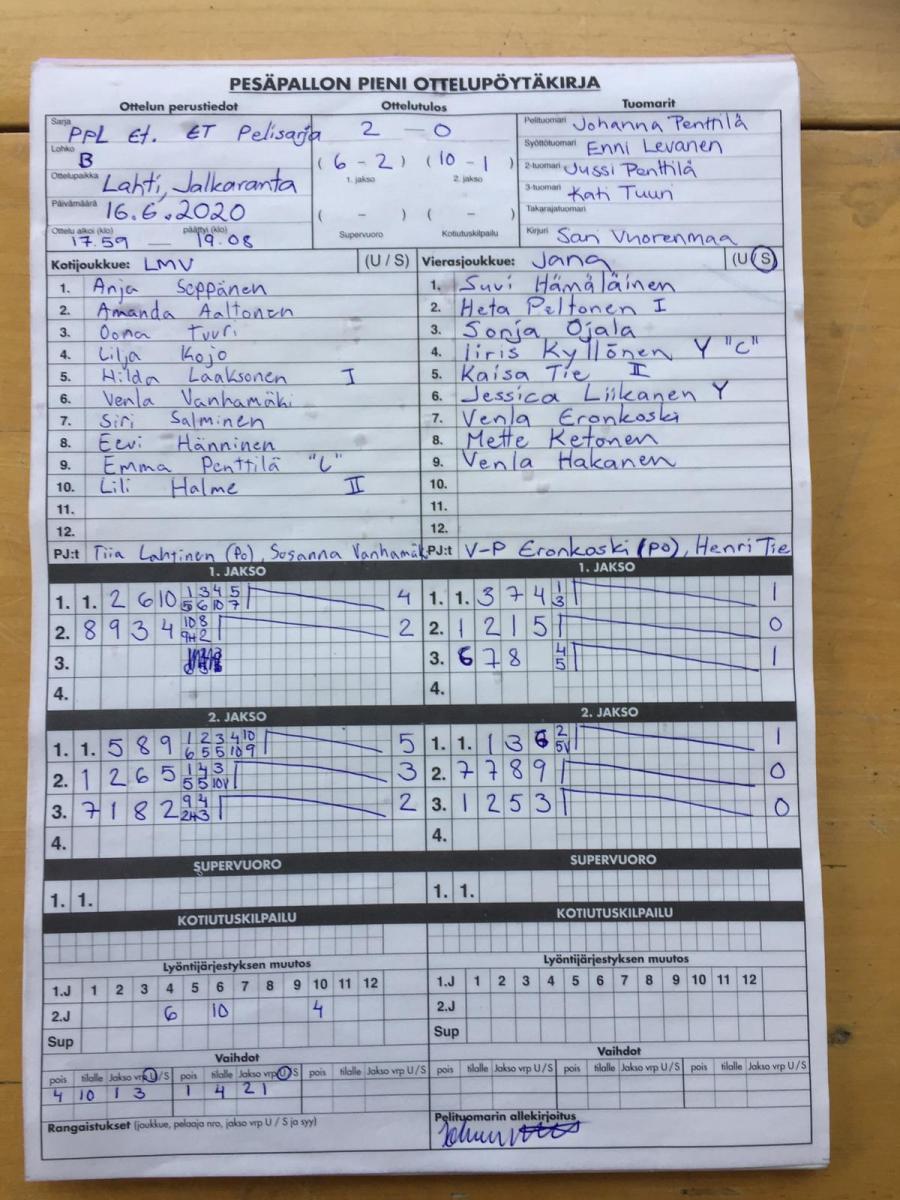 PESÄPALLON PIENI OTTELUPÖYTÄKIRJA
Ottelun perustiedot
Sarja PPL Et. ET Pelisarja
Lohko B
Ottelupaikka Lahti, Jalkaranta
Päivämäärä 16.6.2020
Ottelu alkoi (klo) päättyi (klo)
17.59 — 19.08
Ottelutulos
2 - 0
( 6 - 2 ) ( 10 - 1 )
1. jakso 2. jakso
( - ) ( - )
Supervuoro Kotiutuskilpailu
Tuomarit
Pelituomari Johanna Penttilä
Syöttötuomari Enni Levanen
2-tuomari Jussi Penttilä
3-tuomari Kati Tuuri
Takarajatuomari
Kirjuri Sari Vuorenmaa
Kotijoukkue: LMV (U / S)
1. Anja Seppänen
2. Amanda Aaltonen
3. Oona Tuuri
4. Lilja Kojo
5. Hilda Laaksonen I
6. Venla Vanhamäki
7. Siri Salminen
8. Eevi Hänninen
9. Emma Penttilä "C"
10. Lili Halme II
11.
12.
PJ:t Tiia Lahtinen (Po), Susanna Vanhamäk
Vierasjoukkue: Jana (U / S)
1. Suvi Hämäläinen
2. Heta Peltonen I
3. Sonja Ojala
4. Iiris Kyllönen Y "C"
5. Kaisa Tie II
6. Jessica Liikanen Y
7. Venla Eronkoski
8. Mette Ketonen
9. Venla Hakanen
10.
11.
12.
PJ:t V-P Eronkoski (PO), Henri Tie
1. JAKSO
1. 1. 2 6 10 1 3 4 5 4
5 6 10 7
2. 8 9 3 4 10 8 2
9H 2
3.
4.
1. JAKSO
1. 1. 3 7 4 1 1
3
2. 1 2 1 5 0
3. 6 7 8 4 1
5
4.
2. JAKSO
1. 1. 5 8 9 1 2 3 4 10 5
6 5 5 10 9
2. 1 2 6 5 1 4 3 3
5 5 10V
3. 7 1 8 2 9 4 2
2H 3
4.
2. JAKSO
1. 1. 1 3 6 2 1
5V
2. 7 7 8 9 0
3. 1 2 5 3 0
4.
SUPERVUORO
1. 1.
SUPERVUORO
1. 1.
KOTIUTUSKILPAILU
KOTIUTUSKILPAILU
Lyöntijärjestyksen muutos
1.J 1 2 3 4 5 6 7 8 9 10 11 12
2.J 6 10 4
Sup
Lyöntijärjestyksen muutos
1.J 1 2 3 4 5 6 7 8 9 10 11 12
2.J
Sup
Vaihdot
pois tilalle Jakso vrp U / S pois tilalle Jakso vrp U / S pois tilalle Jakso vrp U / S
4 10 1 3 1 4 2 1
Vaihdot
pois tilalle Jakso vrp U / S pois tilalle Jakso vrp U / S pois tilalle Jakso vrp U / S
Rangaistukset (joukkue, pelaaja nro, jakso vrp U / S ja syy)
Pelituomarin allekirjoitus